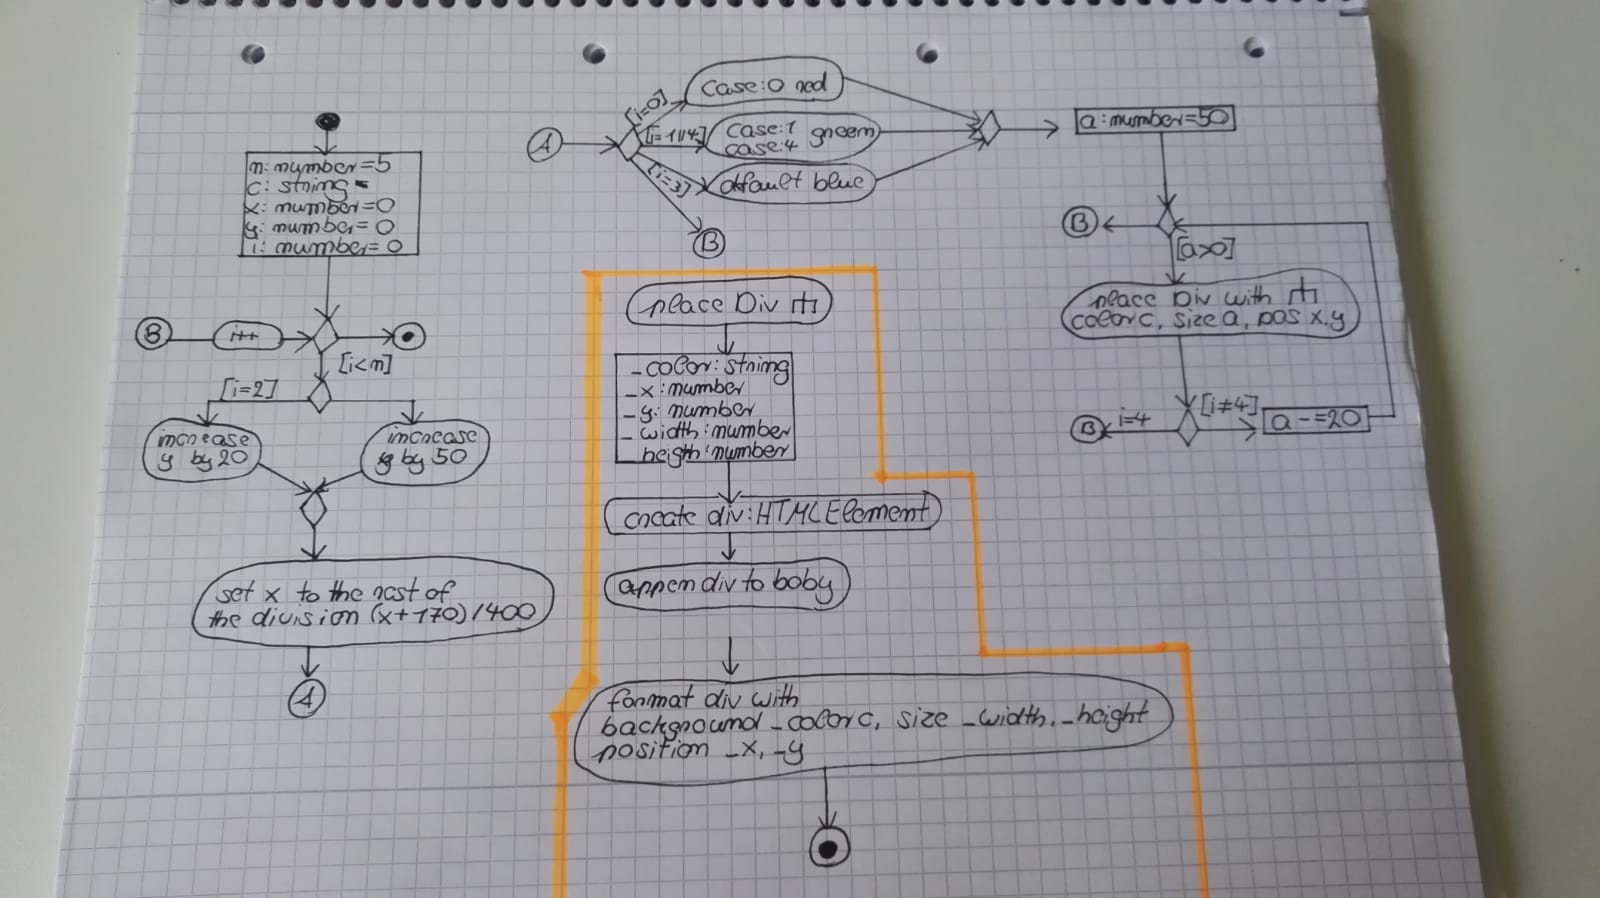 n: number=5
c: string
x: number=0
y: number=0
i: number=0
B
i++
[i<n]
[i=2]
increase
y by 20
increase
y by 50
set x to the rest of
the division (x+170)/400
A
A
[i=0]
case:0 red
[i=1||4]
case:1 green
case:4
[i=3]
default blue
B
a:number=50
B
[a>0]
place Div with
colorc, size a, pos x,y
[i≠4]
i=4
B
a-=20
place Div
_color:string
_x:number
_y:number
_width:number
_heigth:number
create div:HTMLElement
appen div to boby
format div with
background _colorc, size _width, _height
position _x, _y